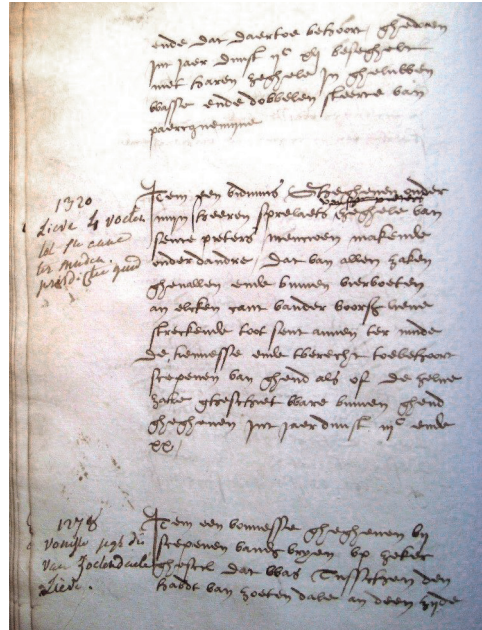 ende dat daertoe behoort, ghegheven
int jaer duust iiᶜ xlj beseghelt
met haren zeghele in gheluwen
wasse ende dobbelen steerte van
paercquemijne
1320
Lieve 4 voeten
tot Ste anne
ter muden
Item een vidimus Ghegheven onder
mijn heeren sprelaets zeghele van
sente pieters mencioen makende
onder dandre, dat van allen zaken
ghevallen ende binnen viervoeten
an elcken cant vander voorss lieve
streckende toot sent annen ter mude
de kennesse ende trecht toebehoort
scepenen van ghend als of de zelve
zake ghesciet ware binnen ghend
ghegheven int jaer duust iiiᶜ ende
xx /
1278
vonisse
van Zoetendaele
Lieve.
Item een vonnesse ghegheven bij
scepenen vanden vryen up zeker
ghescil dat was Tusschen den
stadt van zoeten dale an deen zijde